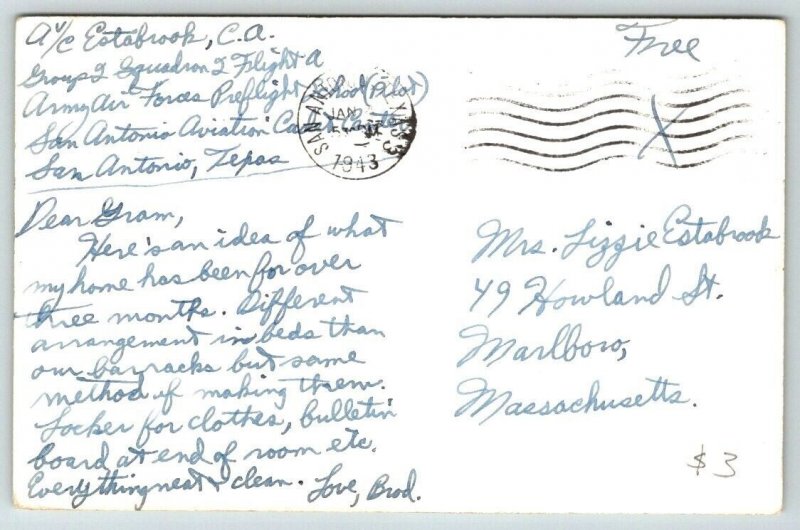 A/C Estabrook, C.A.
Group 2 Squadron 2 Flight A
Army Air Forces Preflight School (Pilot)
San Antonio Aviation Cadet Center
San Antonio, Texas
Free
SAN ANTONIO TEXAS
JAN
1943
3
Dear Gram,
Here's an idea of what
my home has been for over
three months. Different
arrangement in beds than
our barracks but same
method of making them.
Locker for clothes, bulletin
board at end of room etc.
Everything neat & clean. Love, Brod.
Mrs. Lizzie Estabrook
49 Howland St.
Marlboro,
Massachusetts.
$3